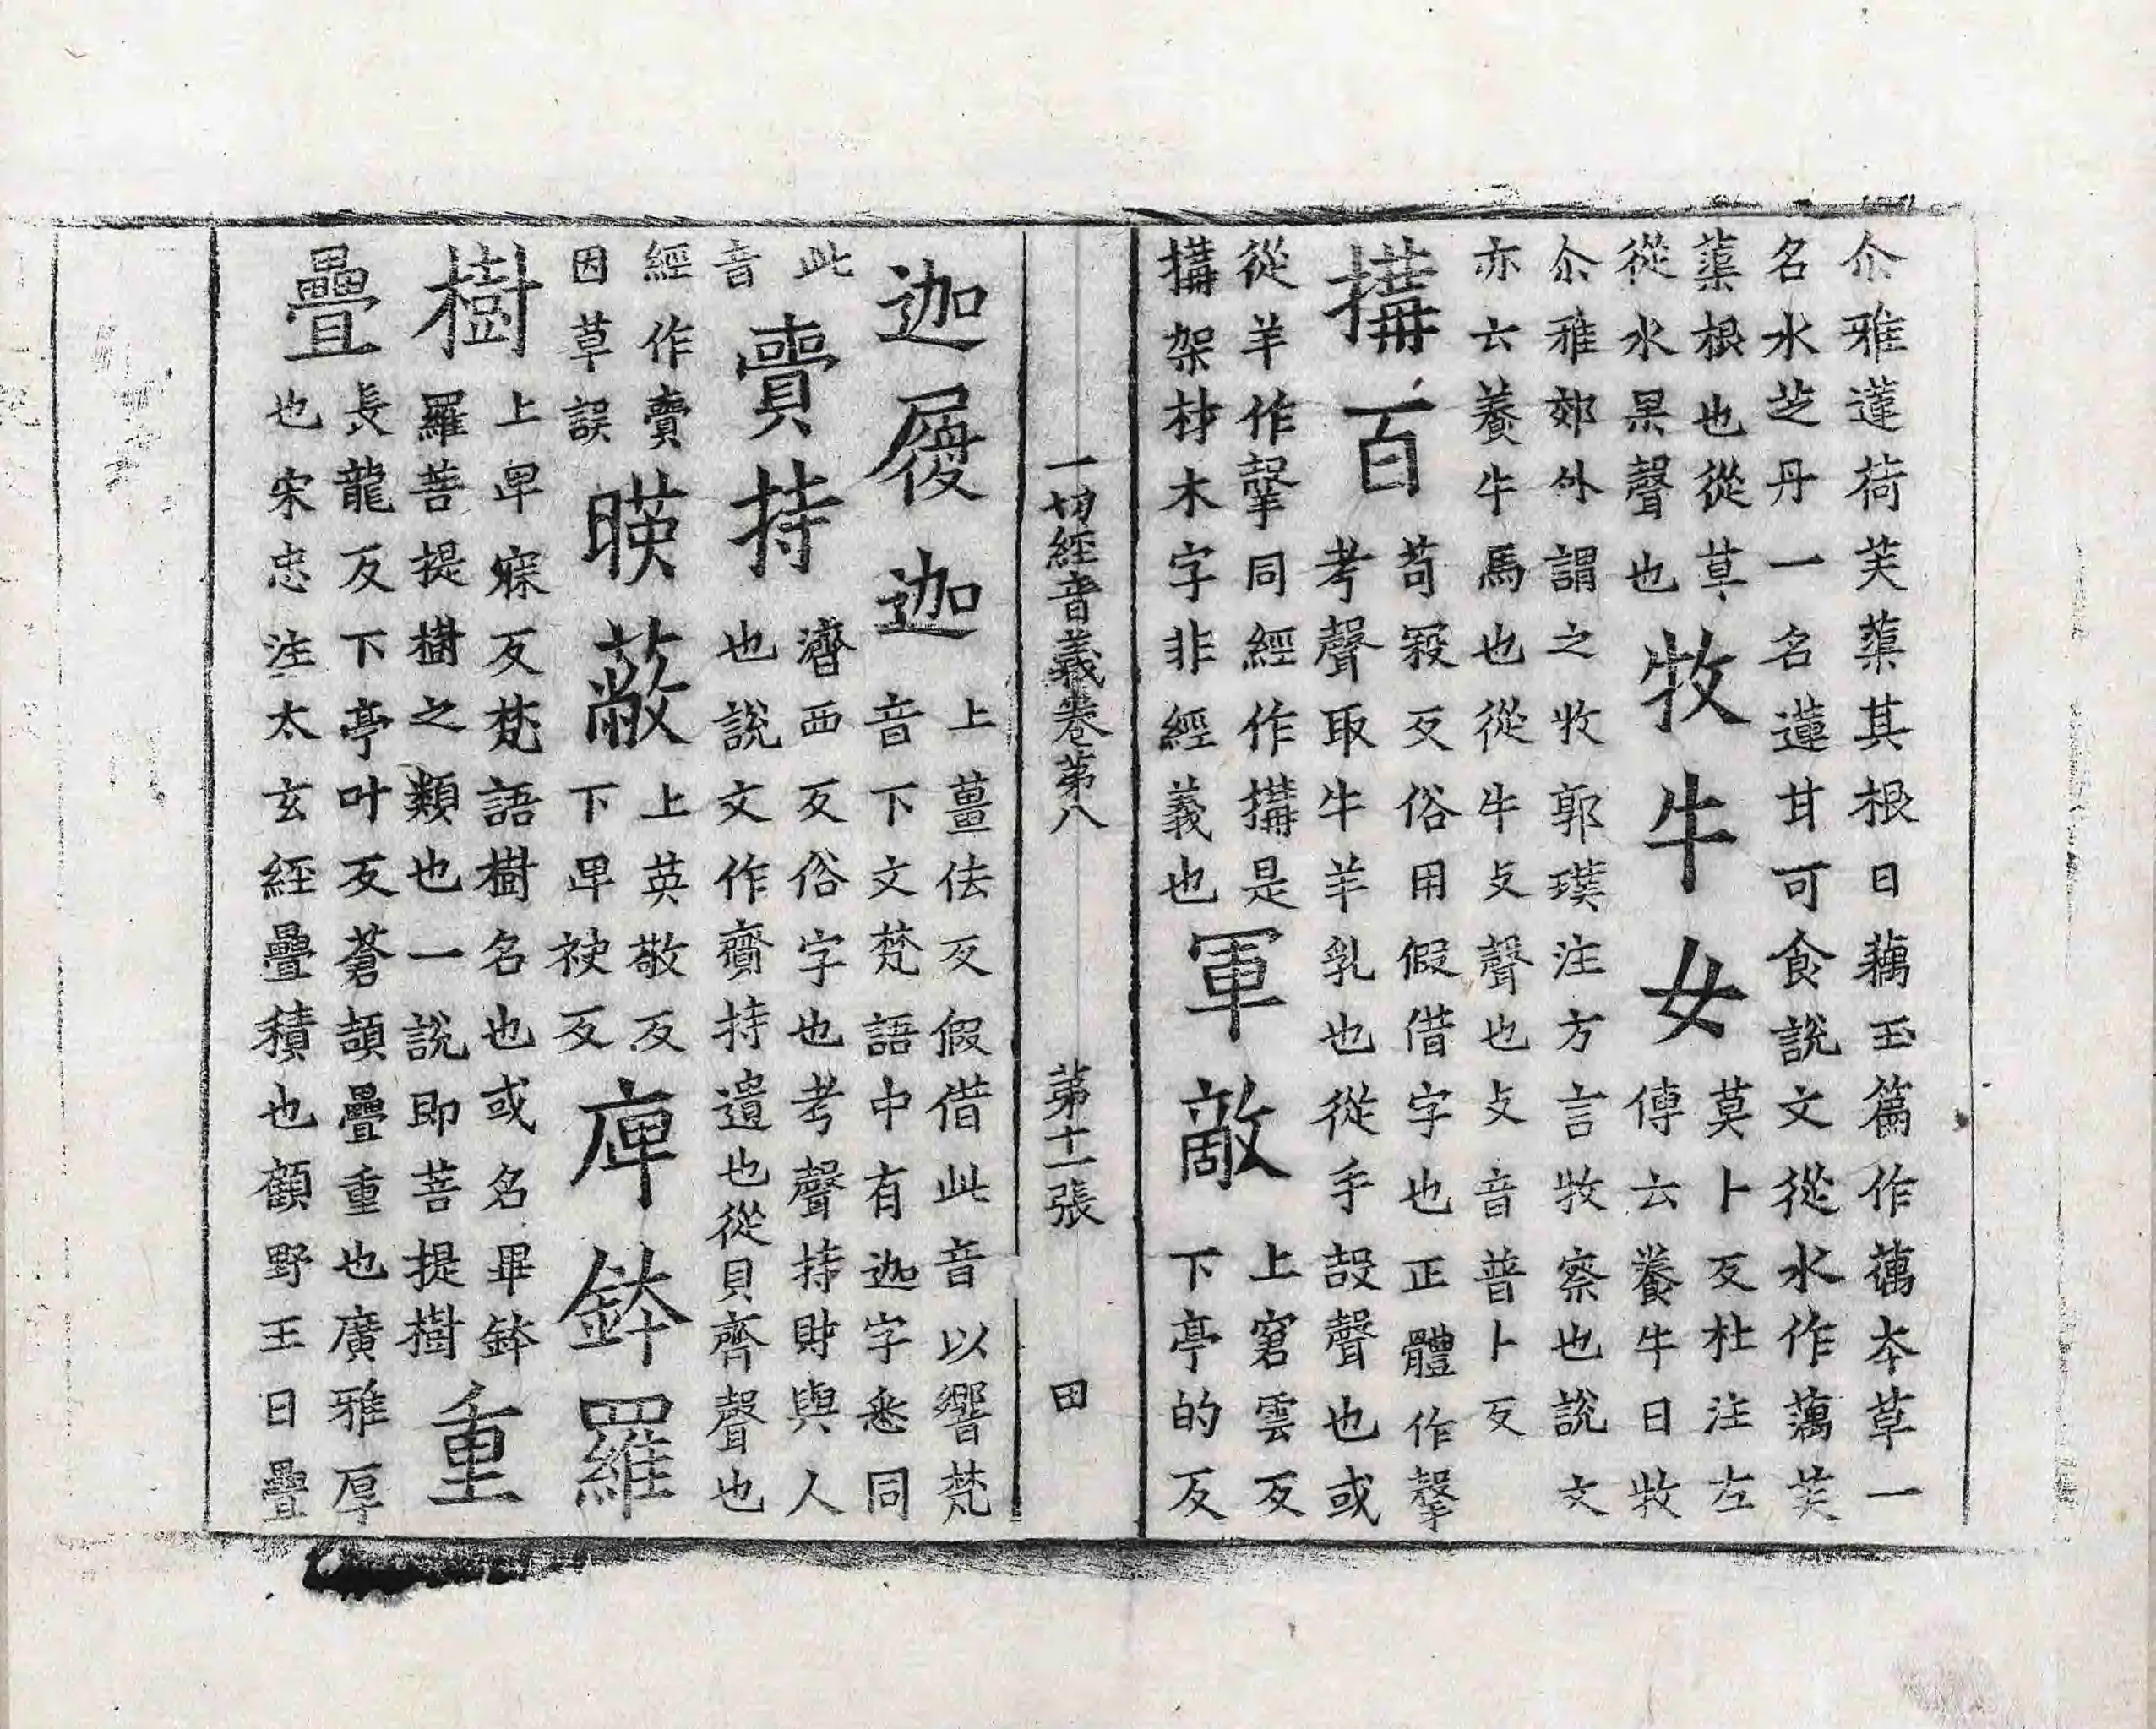 尒雅蓮荷芙蕖其根曰藕玉篇作蕅本草一
名水芝丹一名蓮甘可食說文從水作蕅芙
蕖根也從草
從水㮈聲也
牧牛女
莫卜反杜注左
傳云養牛曰牧
尒雅郊外謂之牧郭璞注方言牧察也說文
亦云養牛馬也從牛攴聲也攴音普卜反
搆百
苟㝅反俗用假借字也正體作㝅
考聲取牛羊乳也從手㱿聲也或
從羊作㝅同經作搆是
搆架材木字非經義也
軍敵
上窘雲反
下亭的反
一切經音義卷第八 第十一張 田
迦履迦
上薑佉反假借此音以響梵
音下文梵語中有迦字悉同
此
音
賷持
濟西反俗字也考聲持財與人
也說文作齎持遺也從貝齊聲也
經作賣
因草誤
暎蔽
上英敬反
下卑袂反
庳鉢羅
樹
上卑寐反梵語樹名也或名畢鉢
羅菩提樹之類也一說即菩提樹
重
疊
長龍反下亭叶反蒼頡疊重也廣雅厚
也宋忠注太玄經疊積也顧野王曰疊